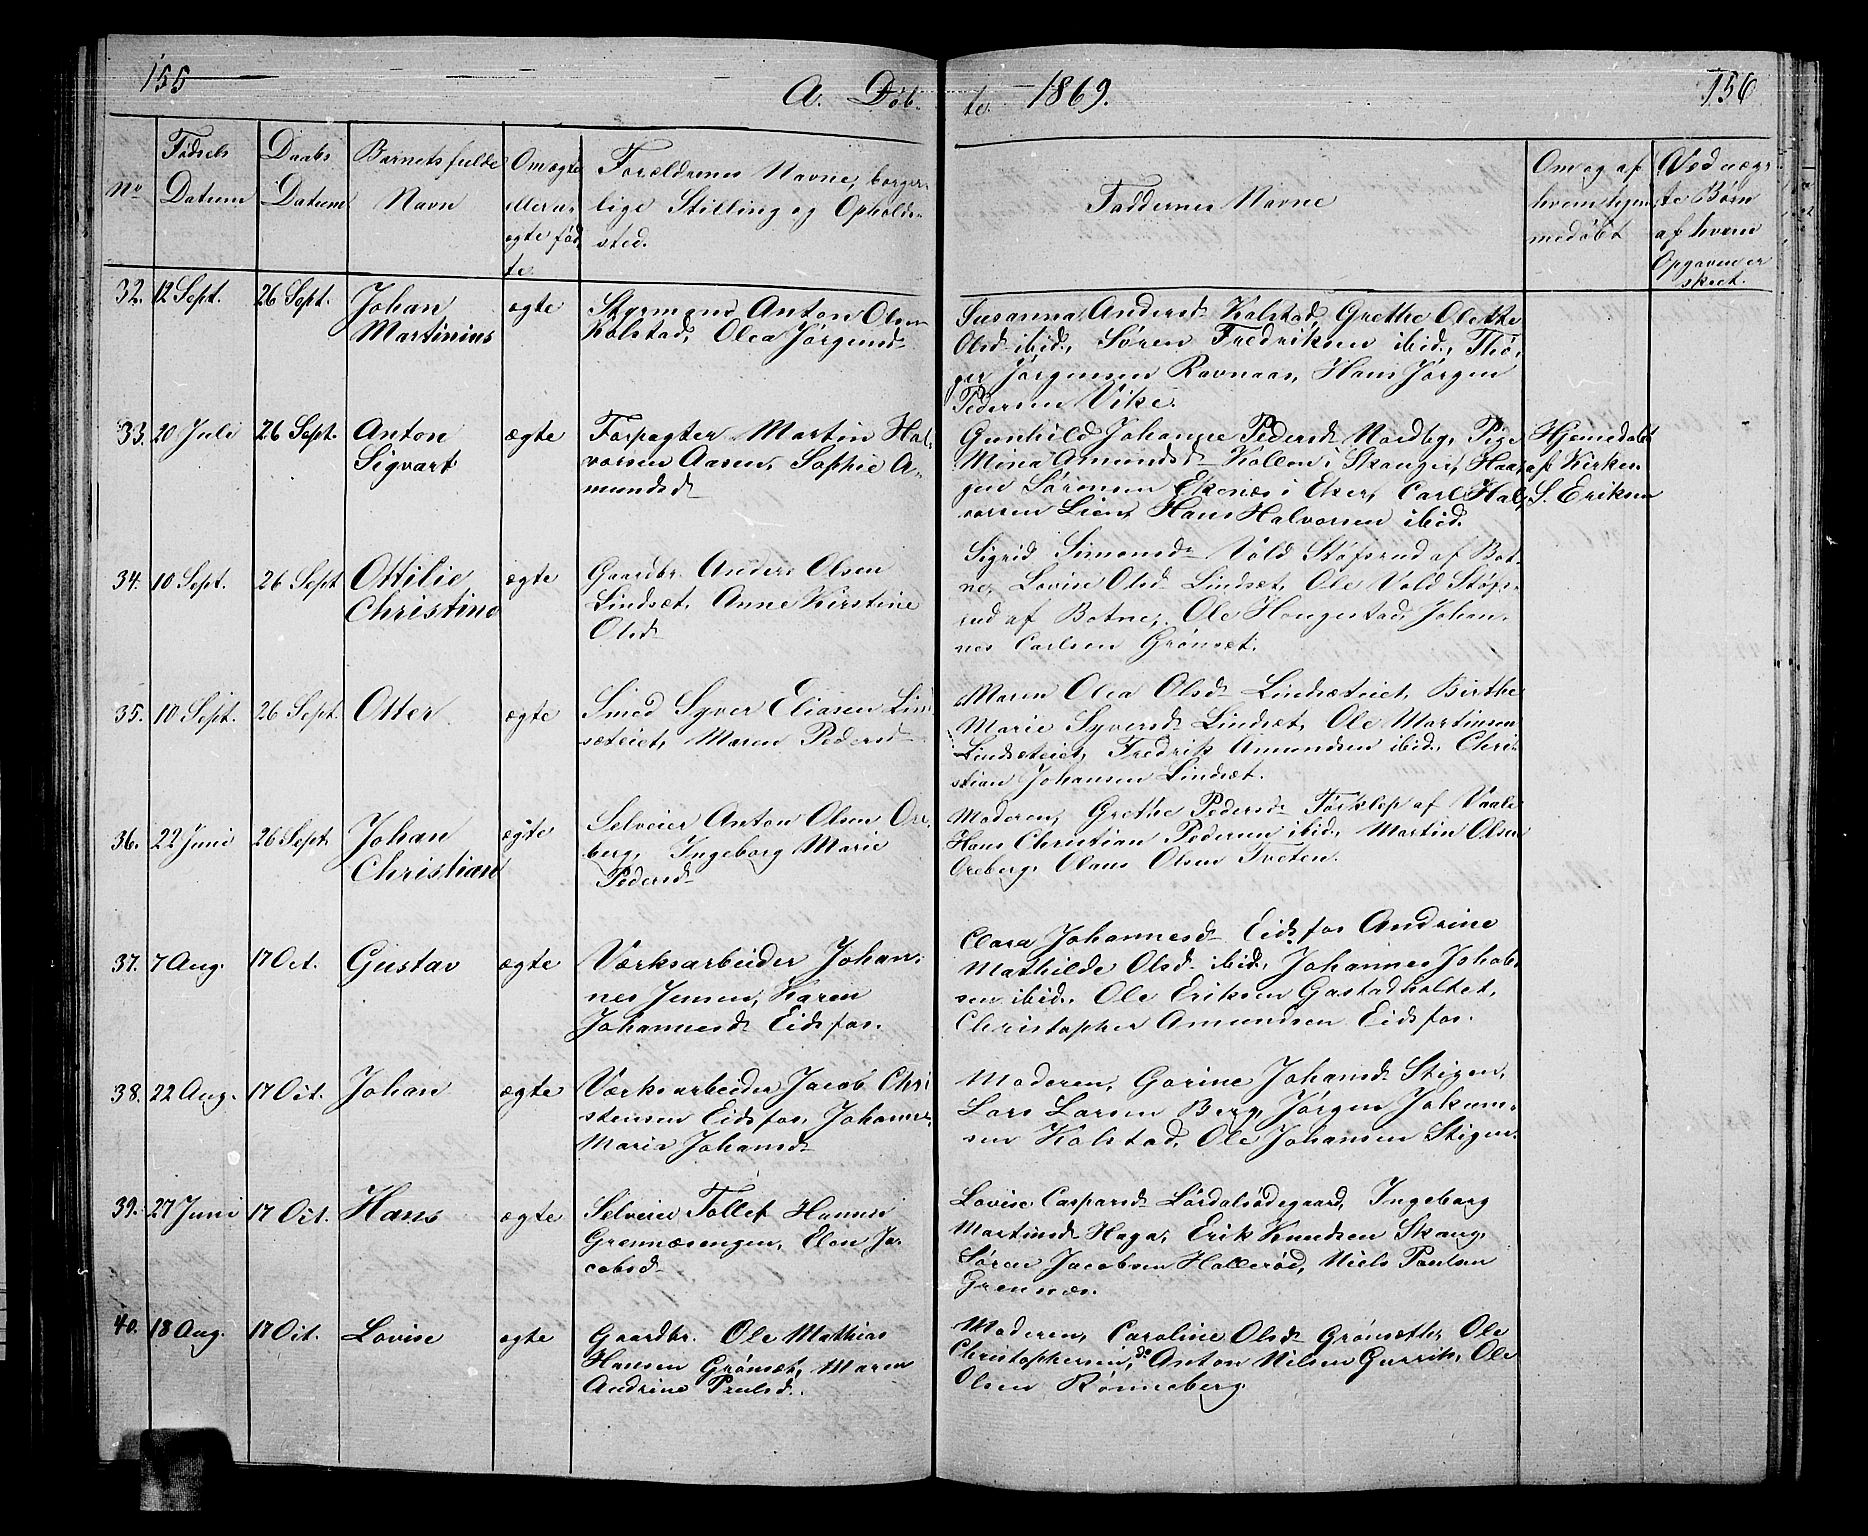 155
A. Døb-
te. 1869.
156
No
Fødsels Datum
Daabs Datum
Barnets fulde Navn
Om ægte eller u-ægte fød-te
Forældrenes Navne, borger-
lige Stilling og Opholds-
sted.
Faddernes Navne
Om og af hvem hjem-medøbt
Ved uæg-te Børn af hvem Opgaven er skeet.
32. 12 Sept. 26 Sept. Johan Martinius ægte
Styrmand Anton Olsen
Kolstad, Olea Jørgensd
Susanna Andersd Kolstad, Grethe Olette
Olsd ibid, Søren Fredriksen ibid, Thø-
ger Jørgensen Ravnaas, Hans Jørgen
Pedersen Vike.
33. 20 Juli 26 Sept. Anton Sigvart ægte
Forpagter Martin Hal-
vorsen Aasen, Sophie A-
mundsd
Gunhild Johanne Pedersd Nordby, Pige
Mina Amundsd Kollen i Skouger, Haa-
gen Sørensen Ekenæs i Eker, Carl Hal-
vorsen Lien, Hans Halvorsen ibid.
Hjemedøbt
af Kirkesr.
S. Eriksen
34. 10 Sept. 26 Sept Ottilie Christine ægte
Gaardbr. Anders Olsen
Lindsæt, Anne Kirstine
Olsd
Sigrid Simonsd Vold Støfsrud af Bot-
ne, Lovise Olsd Lindsæt, Ole Vold Støfs-
rud af Botne, Ole Hougestad, Johan-
nes Carlsen Grønsæt.
35. 10 Sept. 26 Sept. Otter ægte
Smed Syver Eliasen Lind-
sæteiet, Maren Pedersd
Maren Olea Olsd Lindsæteiet, Birthe
Marie Syversd Lindsæt, Ole Martinsen
Lindsæteiet, Fredrik Amundsen ibid, Chri-
stian Johansen Lindsæt.
36. 22 Juni 26 Sept. Johan Christian ægte
Selveier Anton Olsen Ore-
berg, Ingeborg Marie
Pedersd
Moderen, Grethe Pedersd Førklep af Vaale
Hans Christian Pedersen ibid, Martin Olsen
Oreberg, Olaus Olsen Tveten.
37. 7 Aug. 17 Oct. Gustav ægte
Værksarbeider Johan-
nes Jensen, Karen
Johannesd Eidsfos.
Clara Johannesd Eidsfos Andrine
Mathilde Olsd ibid, Johannes Johab-
sen ibid. Ole Eriksen Gastadholtet,
Christopher Amundsen Eidsfos.
38. 22 Aug. 17 Oct. Johan ægte
Værksarbeider Jacob Chri
stensen Eidsfos, Johanne
Maria Johansd
Moderen, Gorine Johansd Stigen,
Lars Larsen Berg, Jørgen Jokum-
sen Kolstad, Ole Johansen Stigen.
39. 27 Juni 17 Oct. Hans ægte
Selveier Tollef Hansen
Grennæsengen, Elen Ja-
cobsd
Lovise Caspersd Lørdalsødegaard, Ingeborg
Martinsd Haga, Erik Knudsen Skoug,
Søren Jacobsen Hallerød, Niels Poulsen
Grennæs.
40. 18 Aug. 17 Oct. Lovise ægte
Gaardbr. Ole Mathias
Hansen Grønsæt, Maren
Andrine Poulsd.
Moderen, Caroline Olsd Grønseth, Ole
Christophersen do, Anton Nilsen Gurrik, Ole
Olsen Rønneberg